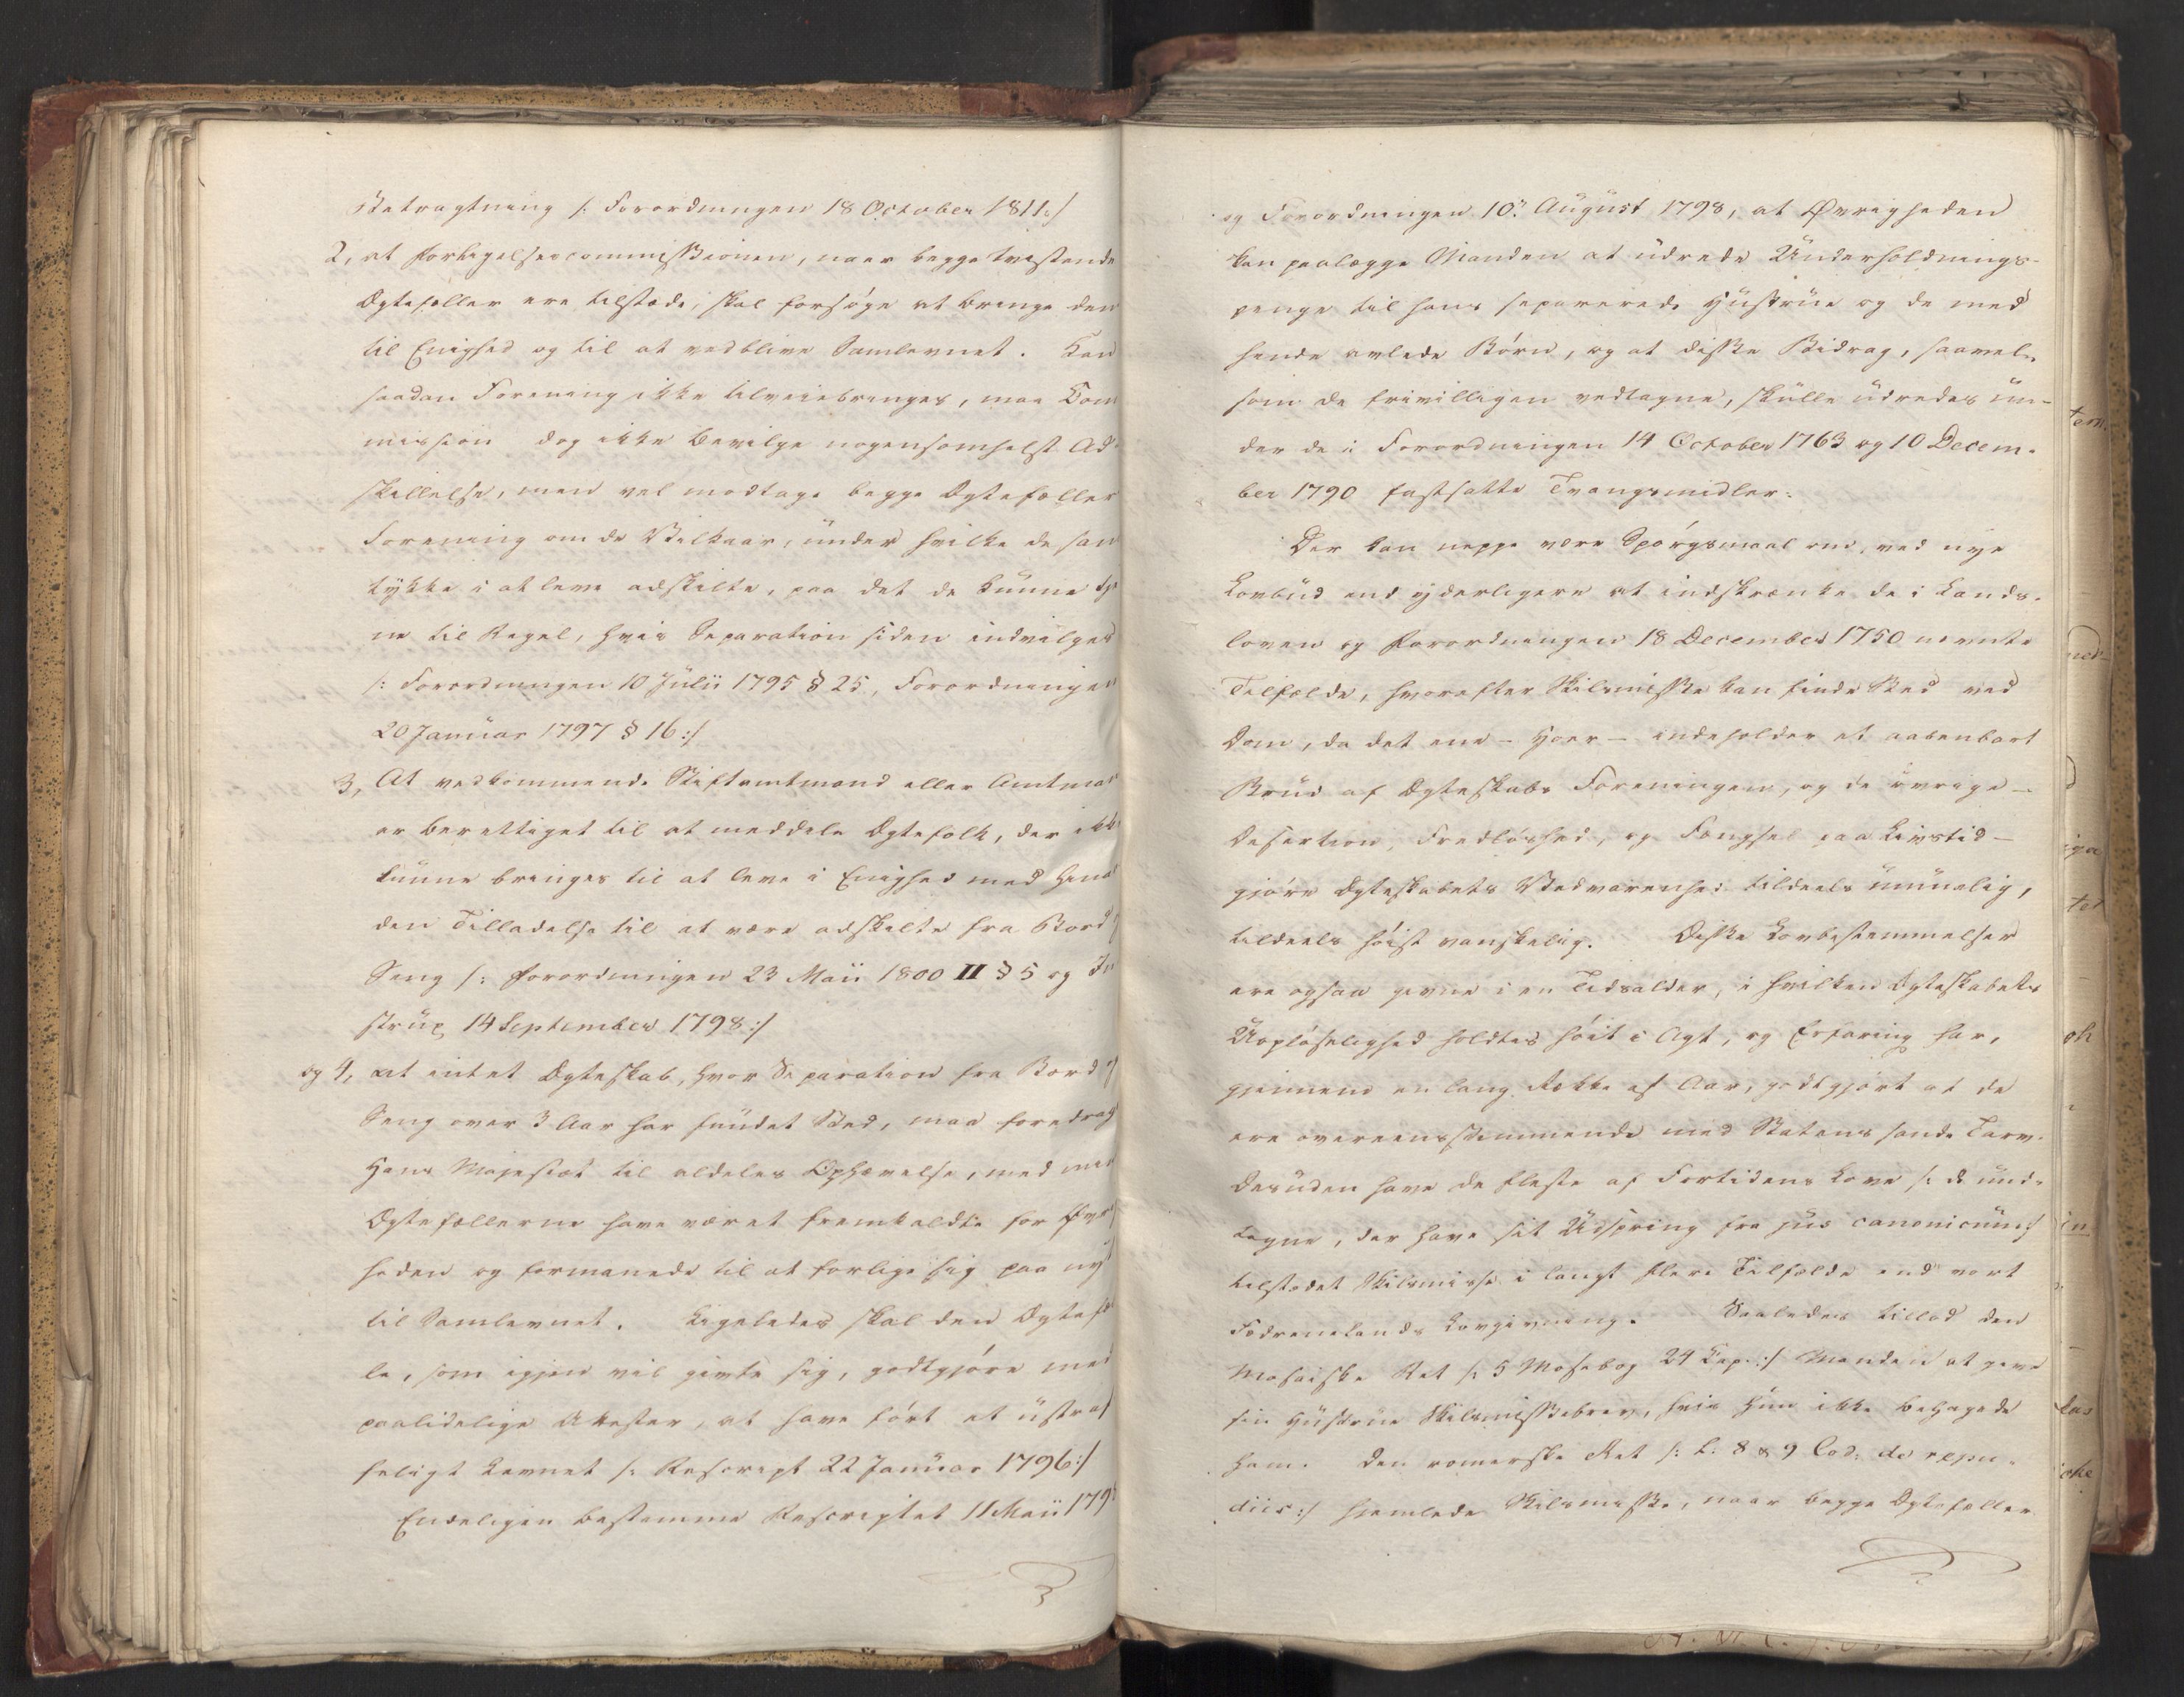 Betragtning /: Forordningen 18 October 1811:/
2, at Forligelsescommissionen, naar begge tvistende
Ægtefæller ere tilstæde, skal forsøge at bringe dem
til Enighed og til at vedblive Samlevnet. Kan
saadan Forening ikke tilveiebringes, maa Com
mission dog ikke bevilge nogensomhelst Ad-
skillelse, men vel modtage begge Ægtefællers
Forening om de Vilkaar, under hvilke de sam
tykke i at leve adskilte, paa det de kunne tje
ne til Regel, hvis Separation siden indvilges
/: Forordningen 10 Julii 1795 § 25, Forordningen
20 Januar 1797 § 16:/
3, At vedkommende Stiftamtmand eller Amtman
er berettiget til at meddele Ægtefolk, der ikke
kunne bringes til at leve i Enighed med hinan
den Tilladelse til at være adskilte fra Bord og
Seng /: Forordningen 23 Maii 1800 II § 5 og In
strux 14 September 1798:/
og 4, at intet Ægteskab, hvor Separation fra Bord og
Seng over 3 Aar har fundet Sted, maa foredrages
Hans Majestæt til aldeles Ophævelse, med min
Ægtefællerne have været fremkaldte for Øvrig
heden og formanede til at forlige sig paa nyt
til Samlevnet. Ligeledes skal den Ægtefæl
le, som igjen vil gifte sig, godtgjøre med
paalidelige Attester, at have ført et ustraf
feligt Levnet /: Rescript 22 Januar 1796:/
Endeligen bestemme Rescriptet 11 Maii 179
og Forordningen 10de August 1798, at Øvrigheden
kan paalægge Manden at udrede Underholdnings-
penge til hans separerede Hustrue og de med
hende avlede Børn, og at disse Bidrag, saavel
som de frivilligen vedtagne, skulle udredes un-
der de i Forordningen 14 October 1763 og 10 Decem-
ber 1790 fastsatte Tvangsmidler.
Der kan neppe være Spørgsmaal om, ved nye
Lovbud end yderligere at indskrænke de i Lands-
loven og Forordningen 18 December 1750 nævnte
Tilfælde, hvorefter Skilsmisse kan finde Sted ved
Dom, da det ene - Hoer - indeholder et aabenbart
Brud af Ægteskabs Foreningen, og de øvrige -
Desertion, Fredløshed, og Fængsel paa Livstid -
gjøre Ægteskabets Vedvarenhed tildeels umuelig,
tildeels høist vanskelig. Disse Lovbestemmelser
ere ogsaa givne i en Tidsalder, i hvilken Ægteskabets
Uopløselighed holdtes høit i Agt, og Erfaring har,
gjennem en lang Række af Aar, godtgjort at de
ere overeensstemmende med Statens sande Tarv.
Desuden have de fleste af Fortidens Love /: de und-
tagne, der have sit Udspring fra jus canonicum:/
tilstedet Skilsmisse i langt flere Tilfælde end vort
Fødrenelands Lovgivning. Saaledes tillod den
Mosaiske Ret /: 5 Mosebog 24 Cap:/ Manden at give
sin Hustrue Skilsmissebrev, hvis hun ikke behagede
ham. Den romerske Ret /: L. 8 & 9 Cod: de repu-
diis:/ hjemlede Skilsmisse, naar begge Ægtefæller